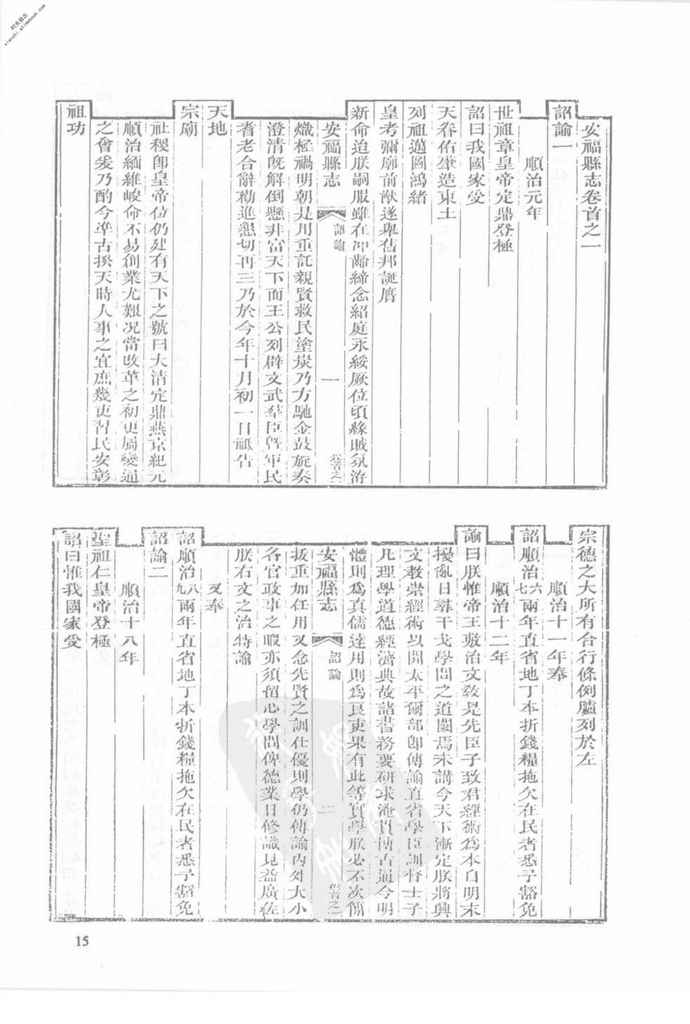 安福縣志卷首之一
詔諭一
順治元年
世祖章皇帝定鼎登極
詔曰我國家受
天眷佑肇造東土
列祖邁圖鴻緒
皇考彌廓前猷遂舉舊邦誕膺
新命迨朕嗣服雖在沖齡締念紹庭永綏厥位頃緣賊氛洊
安福縣志 詔諭 一 卷首之一
熾極禍明朝是用重託親賢救民塗炭乃方馳金鼓旋奏
澄清既解倒懸非富天下而王公列辟文武羣臣暨軍民
耆老合辭勸進懇切再三乃於今年十月初一日祗告
天地
宗廟
社稷即皇帝位仍建有天下之號曰大清定鼎燕京紀元
順治緬維峻命不易創業尤難況當改革之初更屬變通
之會爰乃酌今準古揆天時人事之宜庶幾吏習民安彰
祖功
宗德之大所有合行條例臚列於左
順治十一年奉
詔順治六七兩年直省地丁本折錢糧拖欠在民者悉予豁免
順治十二年
諭曰朕惟帝王敷治文教是先臣子致君經術爲本自明末
擾亂日尋干戈學問之道闕焉未講今天下漸定朕將興
文教崇經術以開太平爾部即傳諭直省學臣訓督士子
凡理學道德經濟典故諸書務要研求淹貫博古通今明
體則爲真儒達用則爲良吏果有此等實學朕必不次簡
安福縣志 詔諭 二 卷首之一
拔重加任用又念先賢之訓仕優則學仍傳諭內外大小
各官政事之暇亦須留心學問俾德業日修識見益廣佐
朕右文之治特諭
又奉
詔順治八九兩年直省地丁本折錢糧拖欠在民者悉予豁免
詔諭二
順治十八年
聖祖仁皇帝登極
詔曰惟我國家受
15